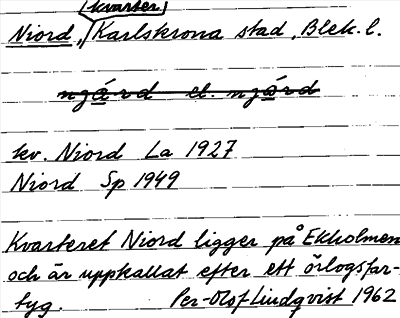 kvarter
Niord, Karlskrona stad, Blek. l.
njá̱rd el. njǫ́rd
kv. Niord La 1927
Niord Sp 1949
Kvarteret Niord ligger på Ekholmen
och är uppkallat efter ett örlogsfar-
tyg. Per-Olof Lindqvist 1962